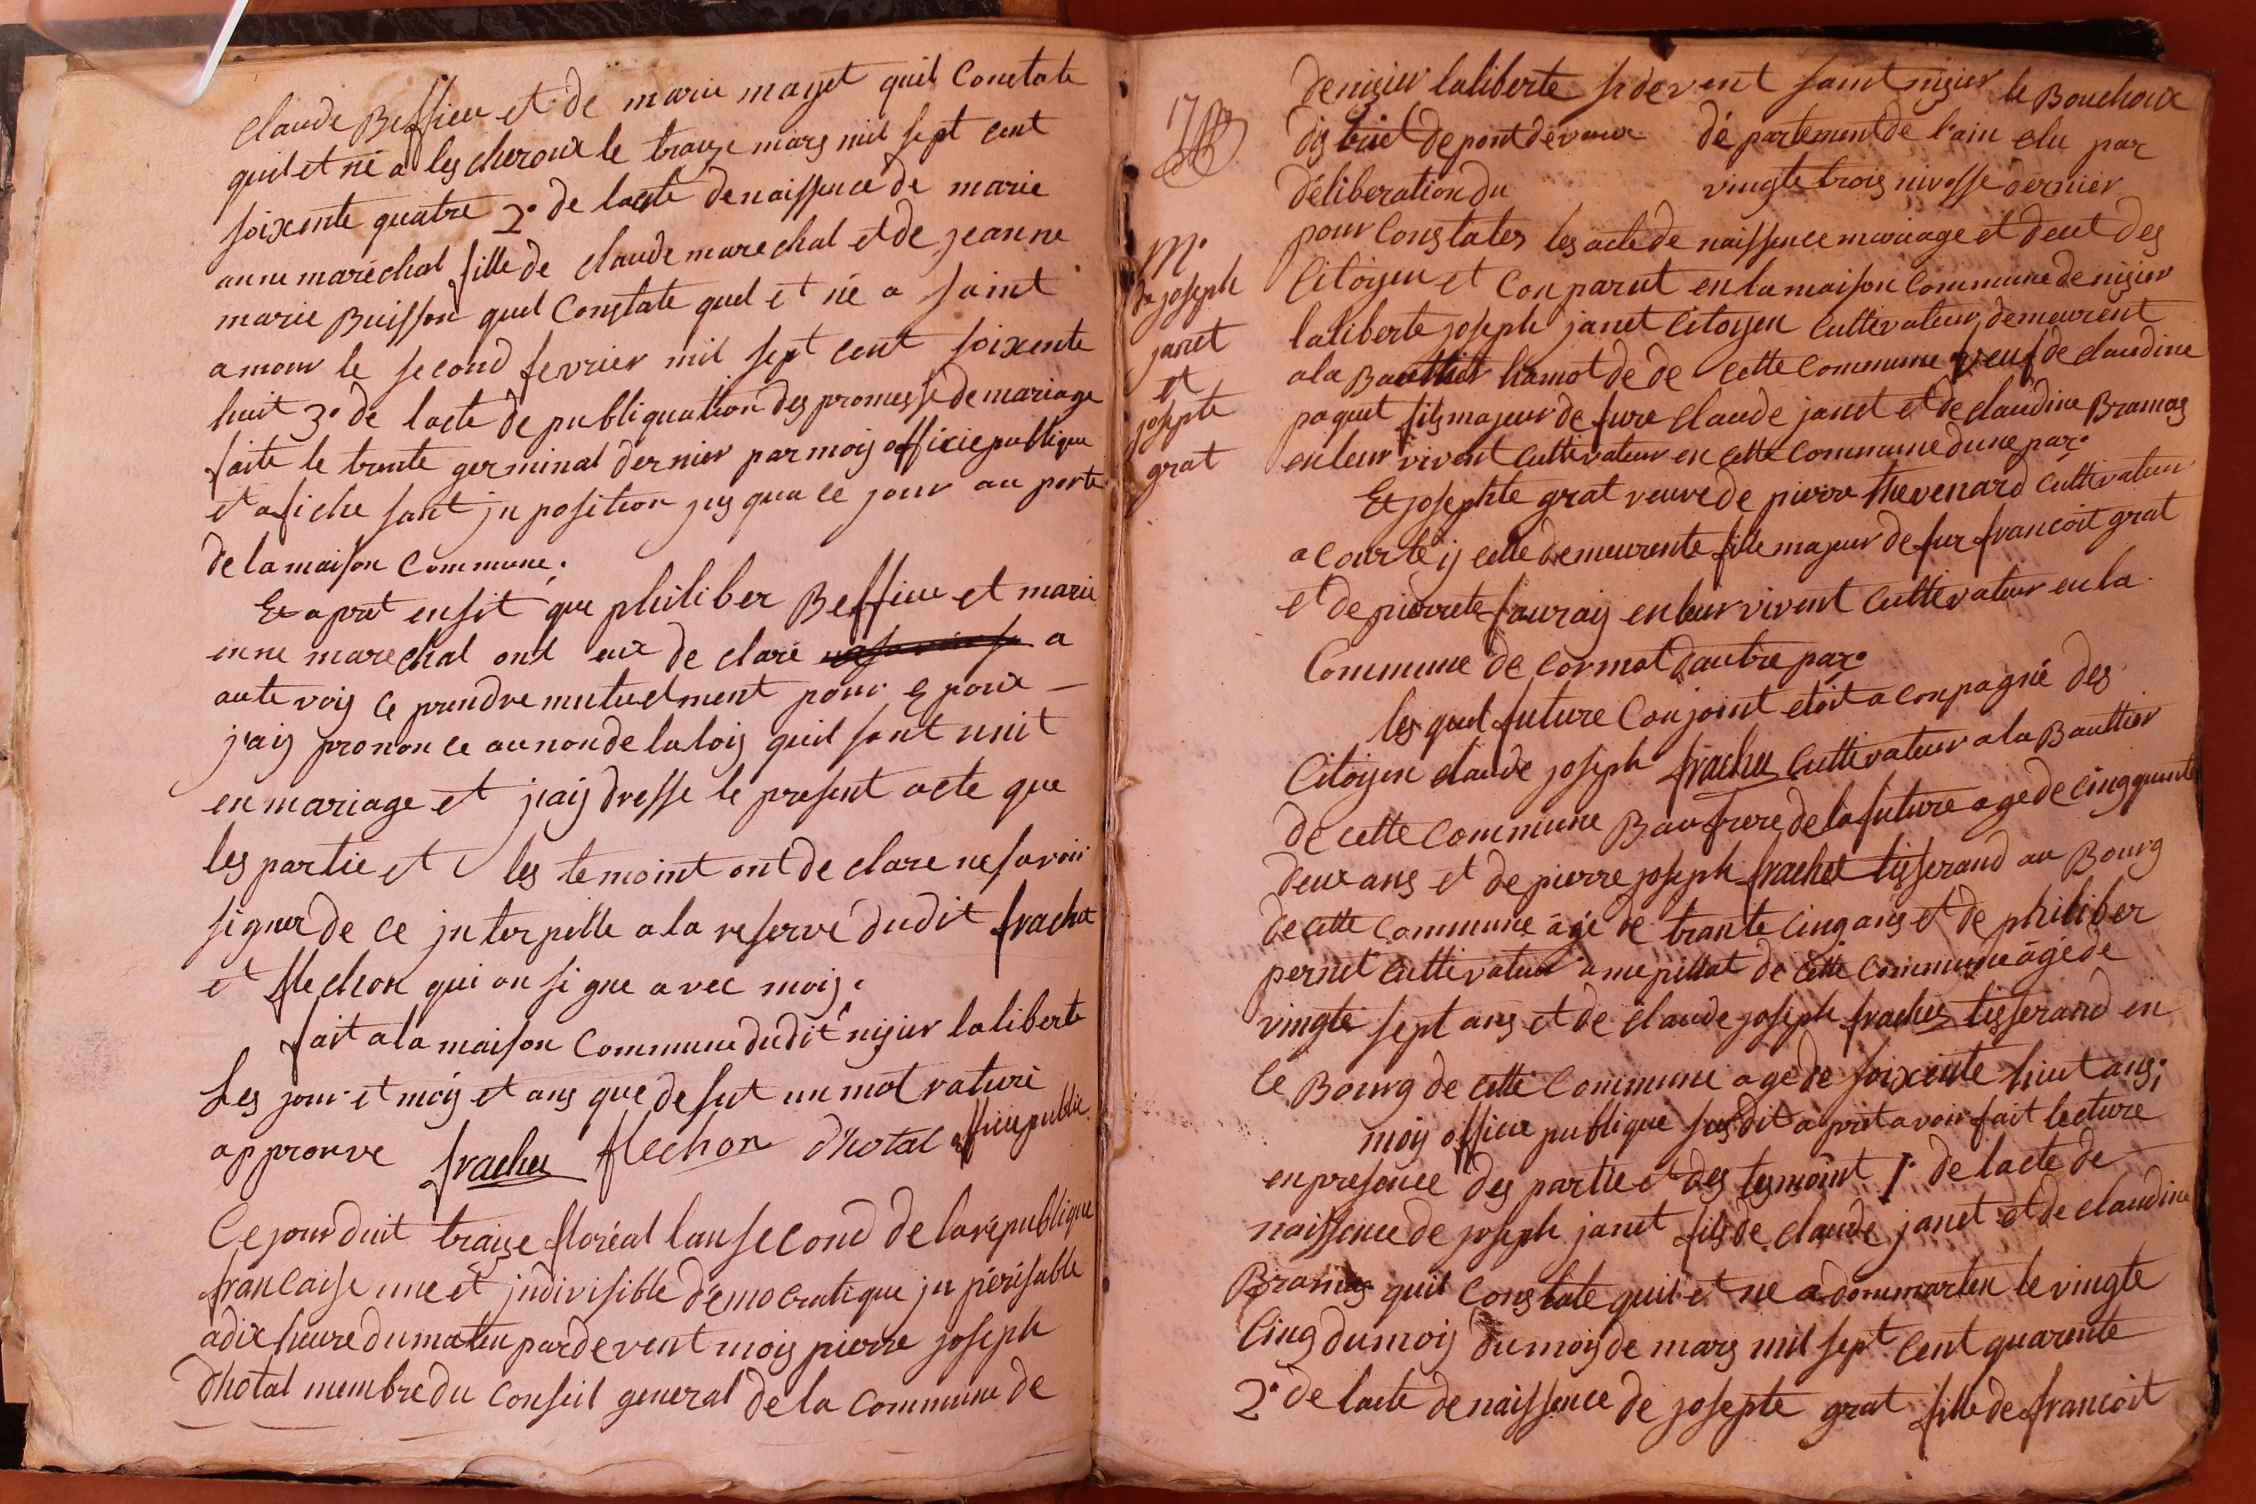 claude Beffieu et de marie mayet quil Constate
quil et né a lescheroux le traize mars mil sept cent
soixente quatre 2° de lacte de naissence de marie
anne maréchal fille de claude marechal et de jeanne
marie Buisson quel Constate quel et né a saint
amour le second fevrier mil sept cent soixente
huit 3° de lacte de publiquation des promesse de mariage
faite le trente germinal dernier par mois officie publique
et afiche sant in position jus qua ce jour au porte
de la maison Commune.
Et aprat ensit que philiber Beffieu et marie
enne marechal ont eux de clare a
aute vois ce prendre mutuelment pour epoux
jais prononce au non de la lois quil sont unit
en mariage et jais dresse le present acte que
les partie et les temoint ont de clare ne savoir
signer de ce interpelle a la reserve dudit frachet
et flechon qui on signe avec mois.
fait a la maison Commune dudit nizier laliberte
Les jour et mois et ans que desut un mot rature
approuve frachet flechon d'hotal officie public
Ce jour duit traize floréal lan second de la république
francaise une et indivisible démocratique in périsable
a dix heure du maten par devent mois pierre joseph
d'hotal membre du Conseil general de la Commune de
17
M.
joseph
janet
et
josephte
grat
de nizier laliberte si devent saint nizier le Bouchoux
distrist de pont de vaux département de l'ain elu par
déliberation du vingte trois nivosse dernier
pour Constater les acte de naissence mariage et decet des
Citoyen et Conparut en la maison Commune de nizier
laliberte joseph janet Citoyen Cultivateur demeurent
a la Bauttier hamot de de cette Commune veuf de claudine
paquet fils majeur de fure claude janet et de claudine Bramas
en leur vivent Cultivateur en cette Commune dune par.
Et josephte grat veuve de pierre thevenard Cultivateur
a Courte ij celle demeurente fille majeur de fur francoit grat
et de pierrete faurais en leur vivent Cultivateur en la
Commune de Cormot dautre par.
les quel future Conjoint etoit aconpagné des
Citoyen claude joseph frachet Cultivateur a la Bauttier
de cette Commune Baufrere de la future age de Cinqquente
deux ans et de pierre joseph frachet tisserand au Bourg
de cette Commune agé de trante cinq ans et de philiber
pernet Cultivateur a mepillat de cette Commune agé de
vingte sept ans et de claude joseph frachet tisserand en
ce Bourg de cette Commune age de soixente huit ans;
mois officie publique susdit a prit avoir fait lecture
en presence des partie et des tesmoint 1° de lacte de
naissence de joseph janet fils de claude janet et de claudine
Bramas quil Constate quil et né a dommarten le vingte
Cinq du mois du mois de mars mil sept cent quarente
2° de lacte de naissence de josepte grat fille de francoit